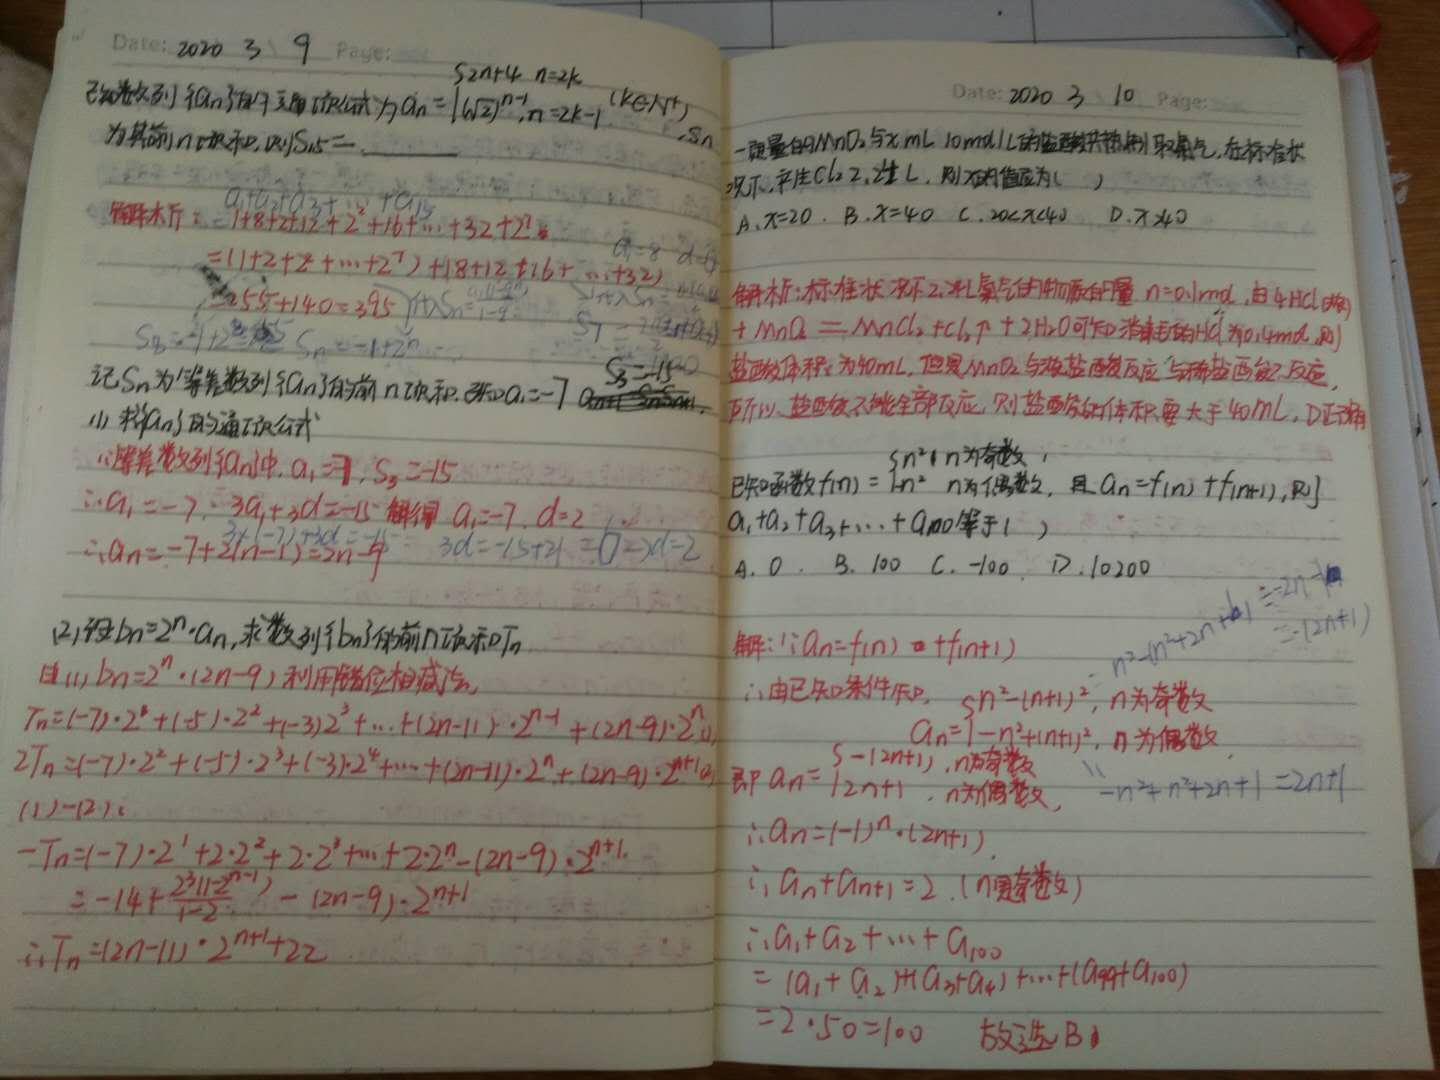 Date: 2020 3 9 Page:
S2n+4 n=2k
已知数列{an}的通项公式为an={(√2)^n-1, n=2k-1 (k∈N+), Sn
为其前n项和,则S15=
a1+a2+a3+…+a15
解析:=1+8+2+12+2²+16+…+32+2^7
=(1+2+2+…+2^7)+(8+12+16+…+32)
=255+140=395
Sn=-1+2^n
S3=-15
记Sn为等差数列{an}的前n项和.已知a1=-7
(1)求{an}的通项公式
∵等差数列{an}中,a1=-7,S3=-15
∴a1=-7,3a1+3d=-15 解得 a1=-7,d=2
3×(-7)+3d=-15 3d=-15+21 d=2
∴an=-7+2(n-1)=2n-9
(2)设bn=2^n·an,求数列{bn}的前n项和Tn
由(1)bn=2^n·(2n-9)利用错位相减法,
Tn=(-7)·2+(-5)·2²+(-3)2³+…+(2n-11)·2^n-1+(2n-9)·2^n(1),
2Tn=(-7)·2²+(-5)·2³+(-3)·2⁴+…+(2n-11)·2^n+(2n-9)·2^n+1(2)
(1)-(2):
-Tn=(-7)·2¹+2·2²+2·2³+…+2·2^n-(2n-9)·2^n+1.
=-14+2³(1-2^n-1)/1-2-(2n-9)·2^n+1
∴Tn=(2n-11)·2^n+1+22
Date: 2020 3 10 Page:
一定量的MnO₂与x mL 10mol/L的盐酸共热制取氯气,在标准状
况下,产生Cl₂ 2.24L,则x的值应为( )
A.x=20. B.x=40 C.20<x<40 D.x>40
解析:标准状况下2.24L氯气的物质的量 n=0.1mol,由4HCl(浓)
+MnO₂=MnCl₂+Cl₂↑+2H₂O可知消耗的HCl为0.4mol,则
盐酸体积为40mL,但是MnO₂与浓盐酸反应与稀盐酸不反应,
所以,盐酸不能全部反应,则盐酸的体积要大于40mL,D正确
{n² n为奇数,
已知函数f(n)={-n² n为偶数,且an=f(n)+f(n+1),则
a1+a2+a3+…+a100等于( )
A.0. B.100 C.-100. D.10200
n²-(n²+2n+1)=-2n-1
=-(2n+1)
解:∵an=f(n)+f(n+1)
∴由已知条件知,
{n²-(n+1)², n为奇数
an={-n²+(n+1)², n为偶数
{-(2n+1),n为奇数
即an={2n+1,n为偶数,
-n²+n²+2n+1=2n+1
∴an=(-1)^n·(2n+1)
∴an+an+1=2.(n是奇数)
∴a1+a2+…+a100
=(a1+a2)+(a3+a4)+…+(a99+a100)
=2·50=100 故选B